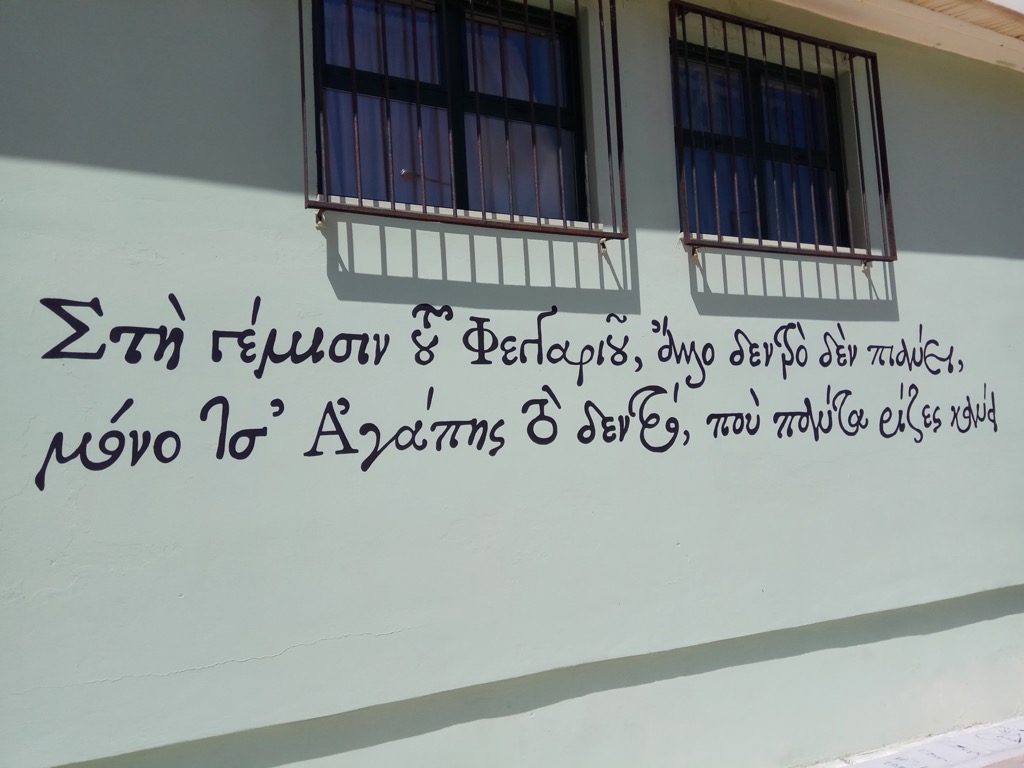 Στὴ γέμισιν τοῦ Φεγγαριοῦ, ἄλλο δεντρὸ δὲν πιάνει,
μόνο τσ' Ἀγάπης τὸ δεντρό, ποὺ πάντα ρίζες κάνει